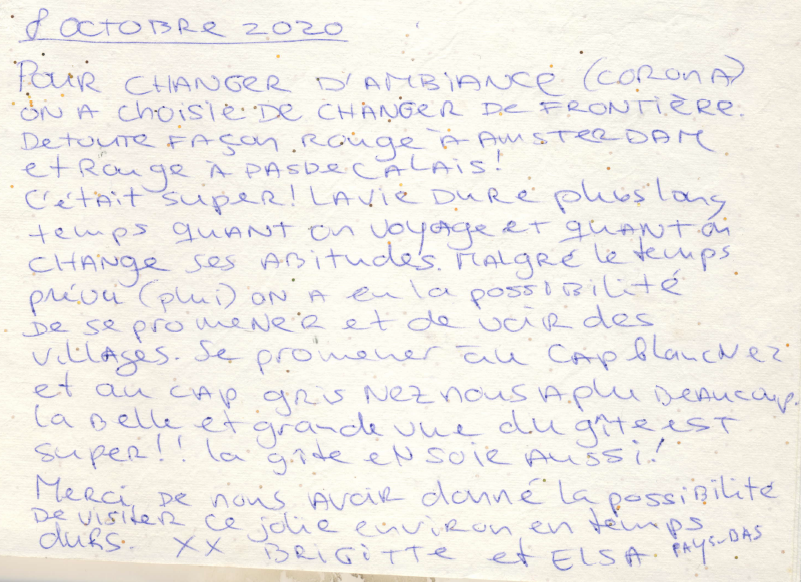 8 OCTOBRE 2020
POUR CHANGER D'AMBIANCE (CORONA)
ON A CHOISIE DE CHANGER DE FRONTIÈRE.
De toute FAÇON Rouge à AMSTERDAM
et Rouge à PASDECALAIS!
C'était super! LA vie DURe plus long
temps QUANT on voyage et QUANT on
CHANge ses ABitudes. MALGRé le temps
prévu (plui) ON A eu la possiBilité
De se promeneR et de voir des
villAges. Se promener au CAP BlancNez
et au CAP gris Nez nous A plu BEAUcoup.
la Belle et grande vue du gîte est
super!! la gîte eN soie Aussi!
Merci De nous AvoiR donné la possiBilité
De visiteR ce jolie environ en temps
duRs. XX BRIGITTe et ELSA PAYS-BAS